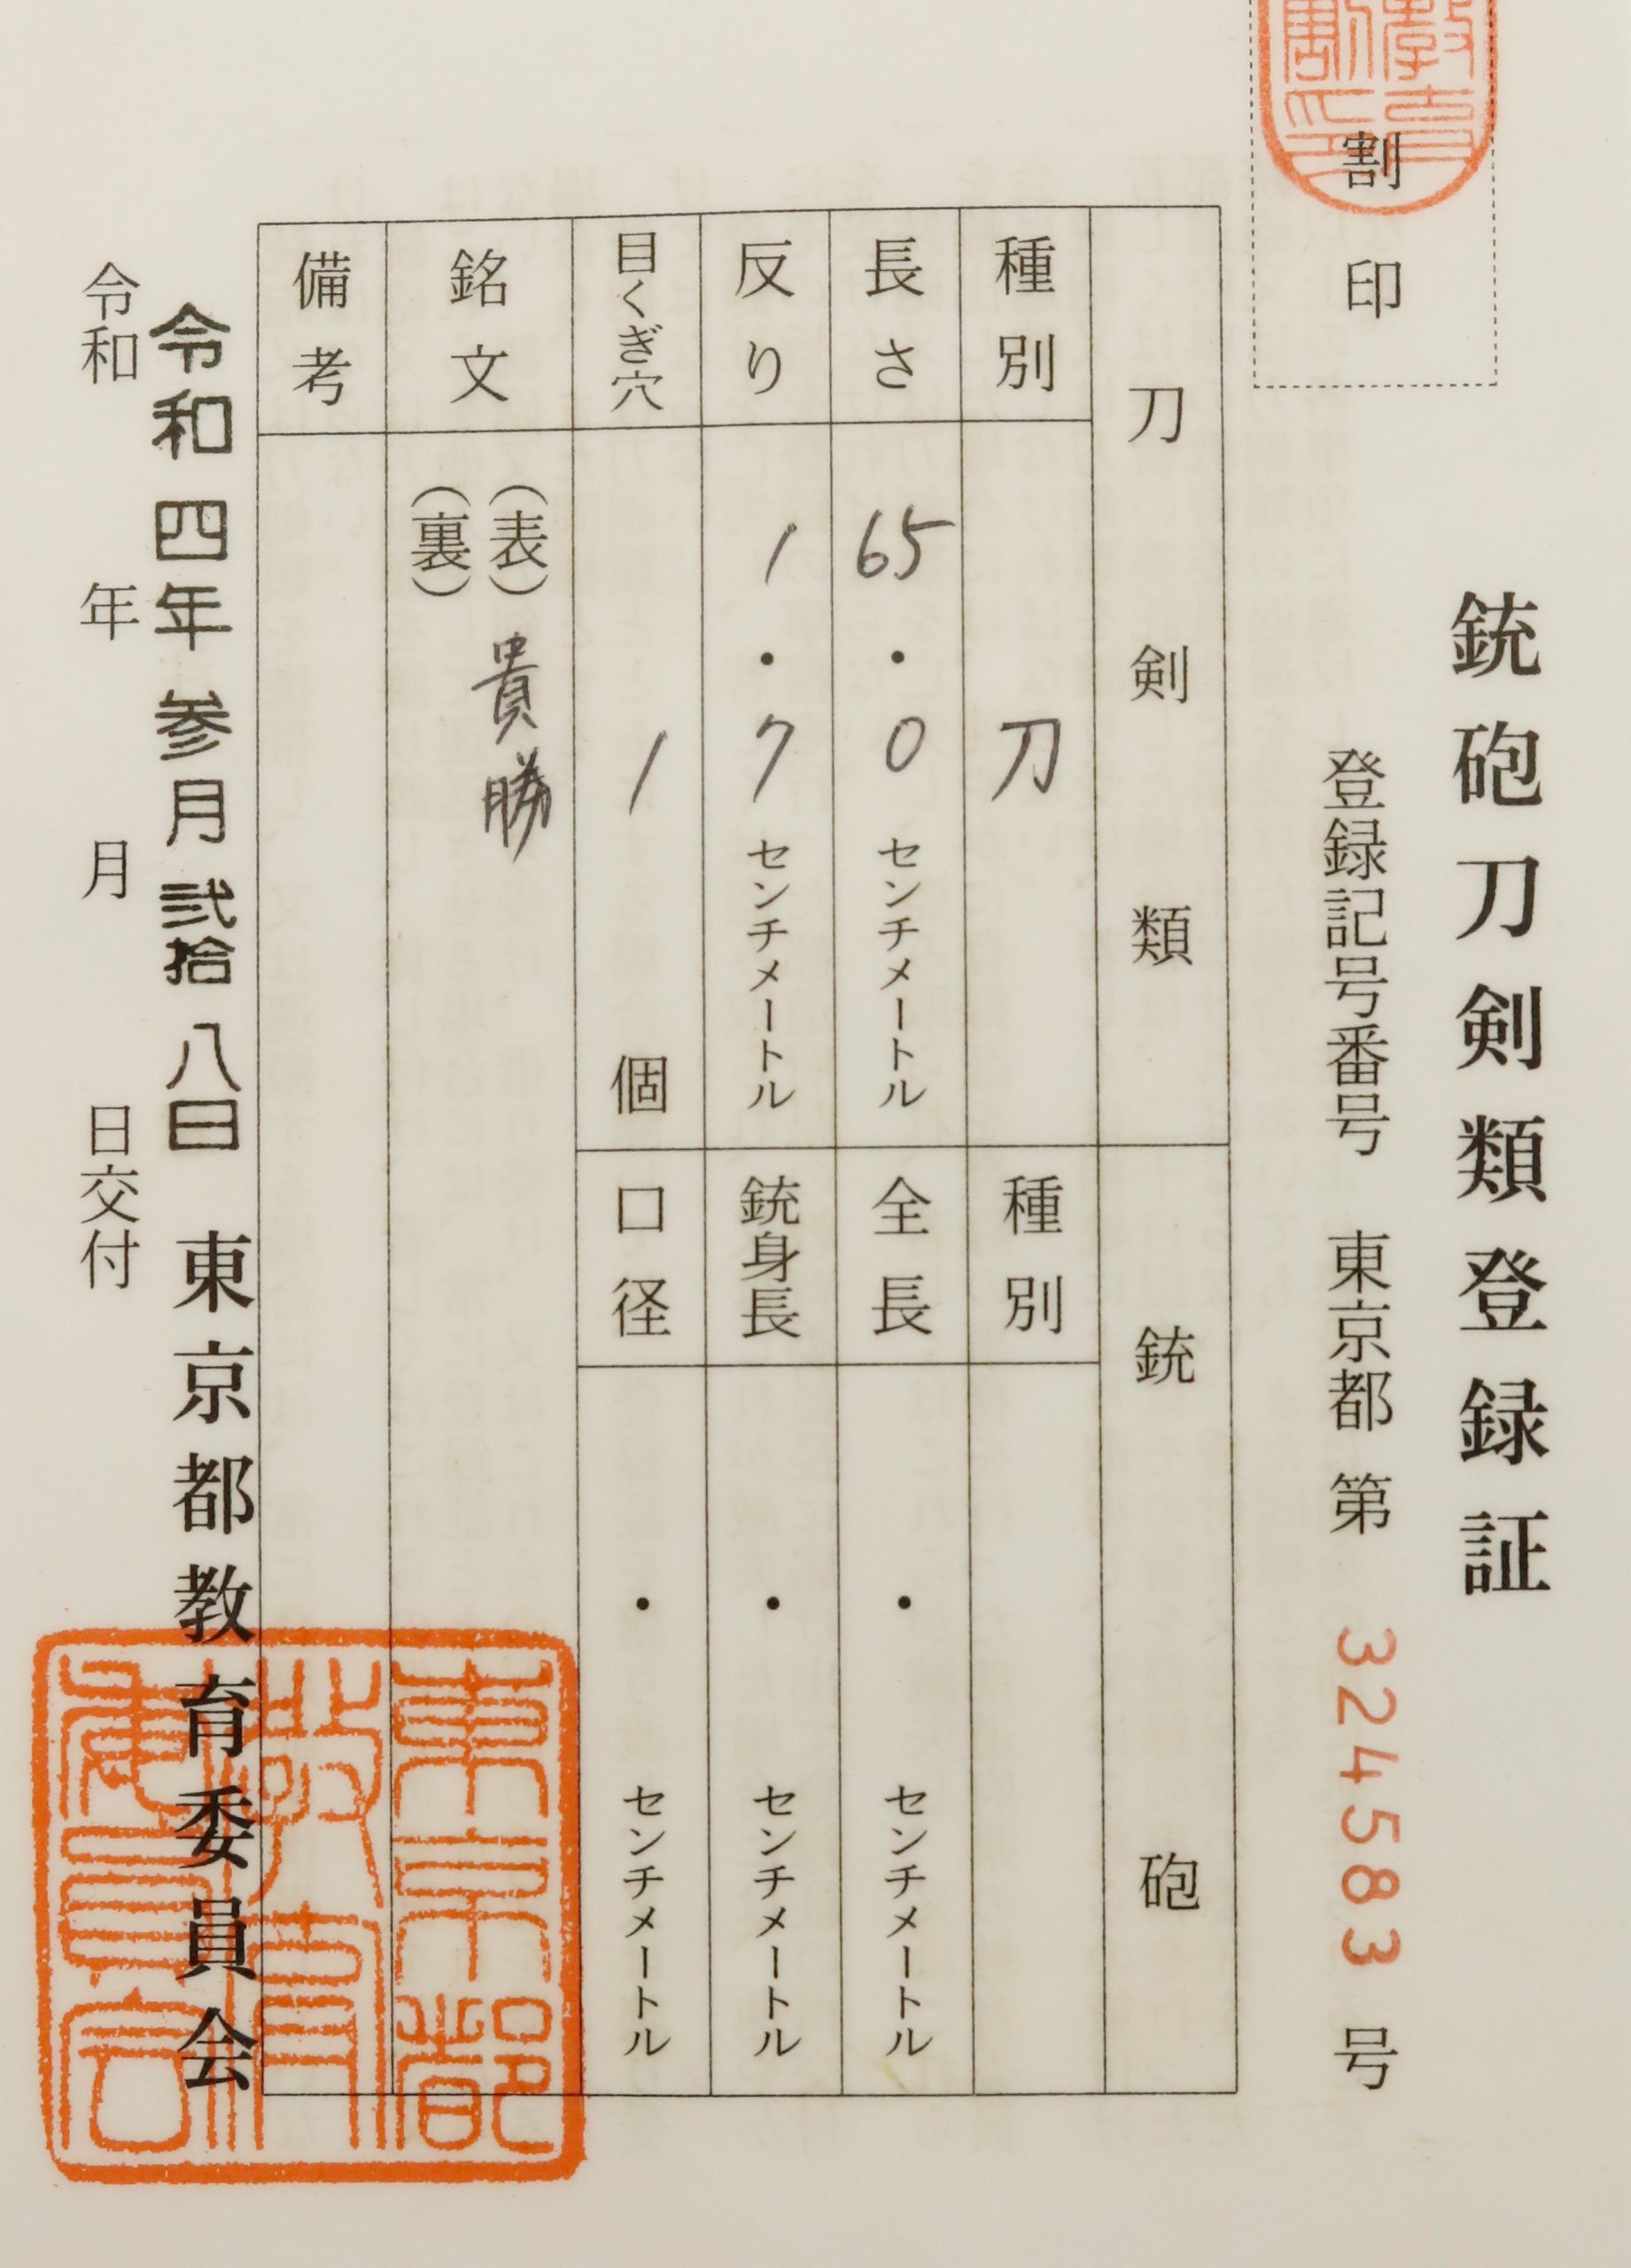 銃砲刀剣類登録証
割印
登録記号番号 東京都 第 324583 号
刀剣類
銃砲
種別 刀
種別
長さ 65・0 センチメートル
全長 ・ センチメートル
反り 1・7 センチメートル
銃身長 ・ センチメートル
目くぎ穴 1 個
口径 ・ センチメートル
銘文
(表) 貴勝
(裏)
備考
令和四年参月弐拾八日 東京都教育委員会
令和 年 月 日交付
東京都
教育
委員会